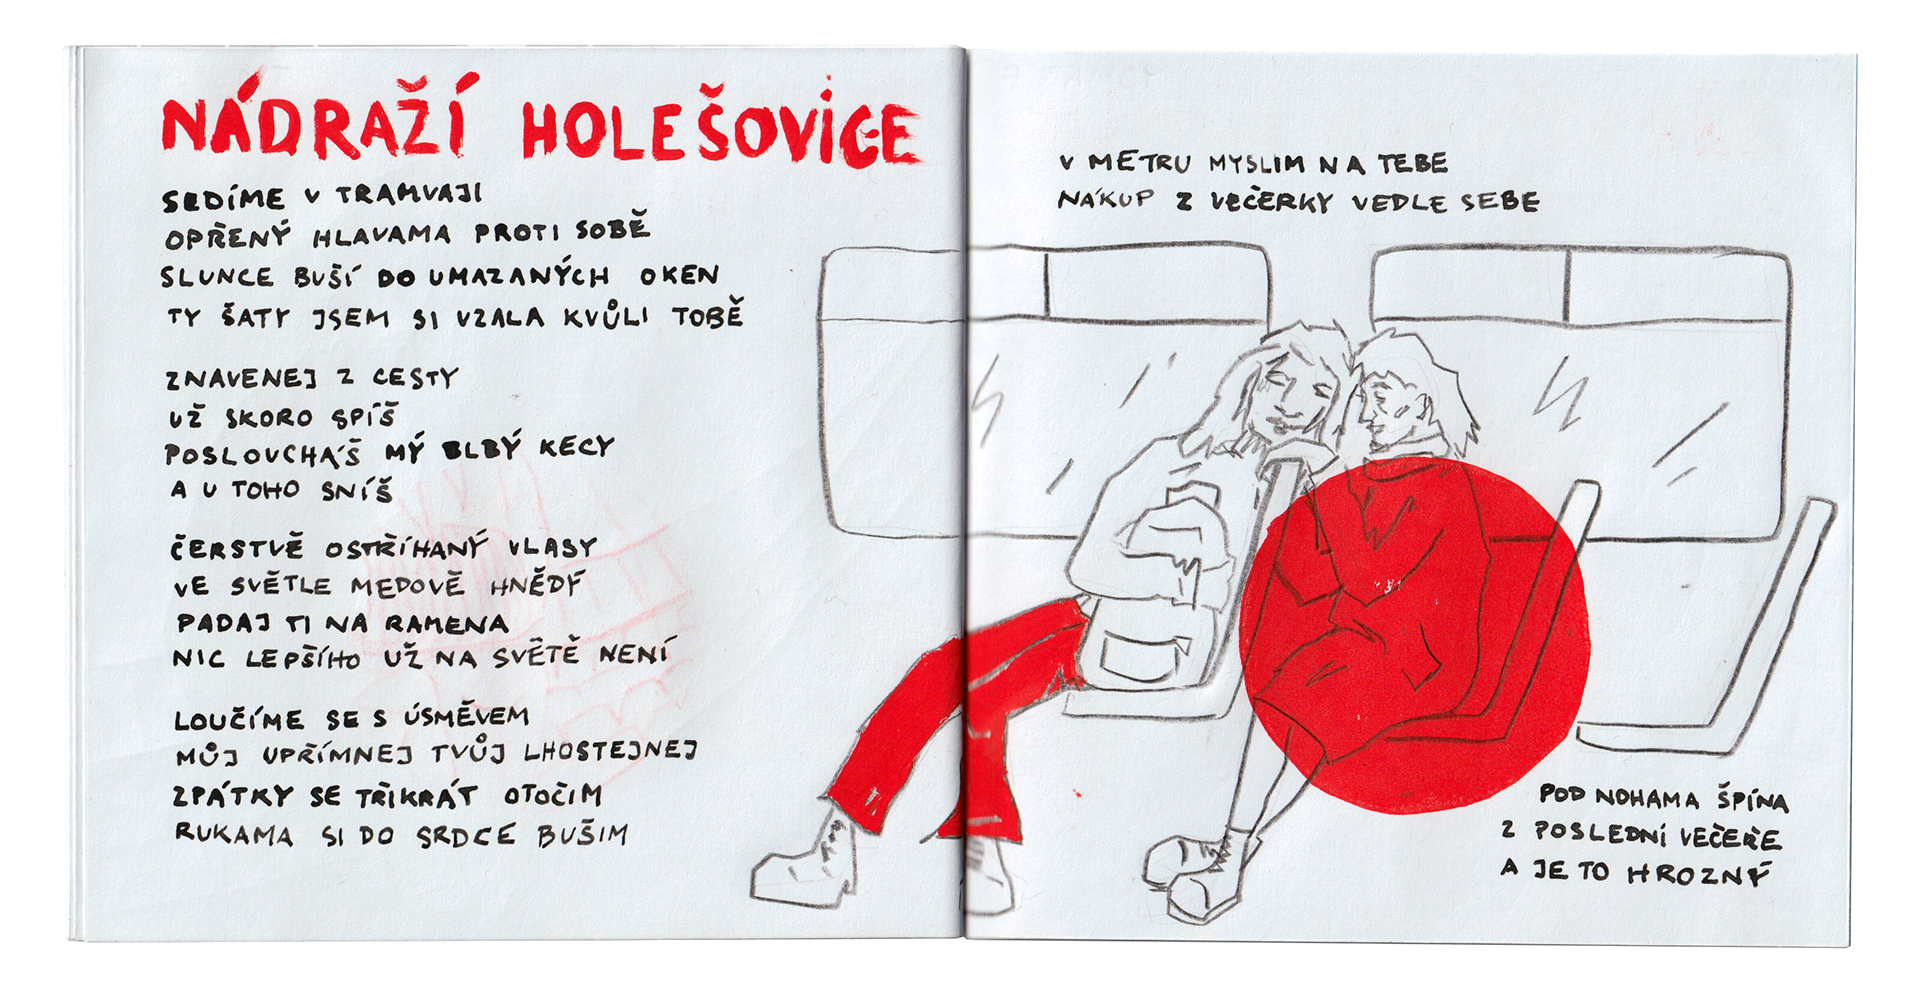 NÁDRAŽÍ HOLEŠOVICE
SEDÍME V TRAMVAJI
OPŘENÝ HLAVAMA PROTI SOBĚ
SLUNCE BUŠÍ DO UMAZANÝCH OKEN
TY ŠATY JSEM SI VZALA KVŮLI TOBĚ
ZNAVENEJ Z CESTY
UŽ SKORO SPÍŠ
POSLOUCHÁŠ MÝ BLBÝ KECY
A U TOHO SNÍŠ
ČERSTVĚ OSTŘÍHANÝ VLASY
VE SVĚTLE MEDOVĚ HNĚDÝ
PADAJ TI NA RAMENA
NIC LEPŠÍHO UŽ NA SVĚTĚ NENÍ
LOUČÍME SE S ÚSMĚVEM
MŮJ UPŘÍMNEJ TVŮJ LHOSTEJNEJ
ZPÁTKY SE TŘIKRÁT OTOČIM
RUKAMA SI DO SRDCE BUŠIM
V METRU MYSLIM NA TEBE
NÁKUP Z VEČERKY VEDLE SEBE
POD NOHAMA ŠPÍNA
Z POSLEDNÍ VEČEŘE
A JE TO HROZNÝ